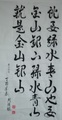 既要綠水青山也要
金山銀山綠水青山
就是金山銀山